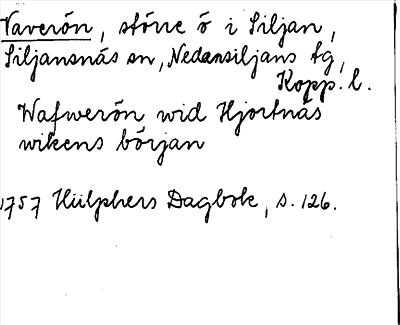 Vaverön, större ö i Siljan,
Siljansnäs sn, Nedansiljans tg,
Kopp. l.
Wafwerön wid Hjortnäs
wikens början
1757 Hülphers Dagbok, s. 126.